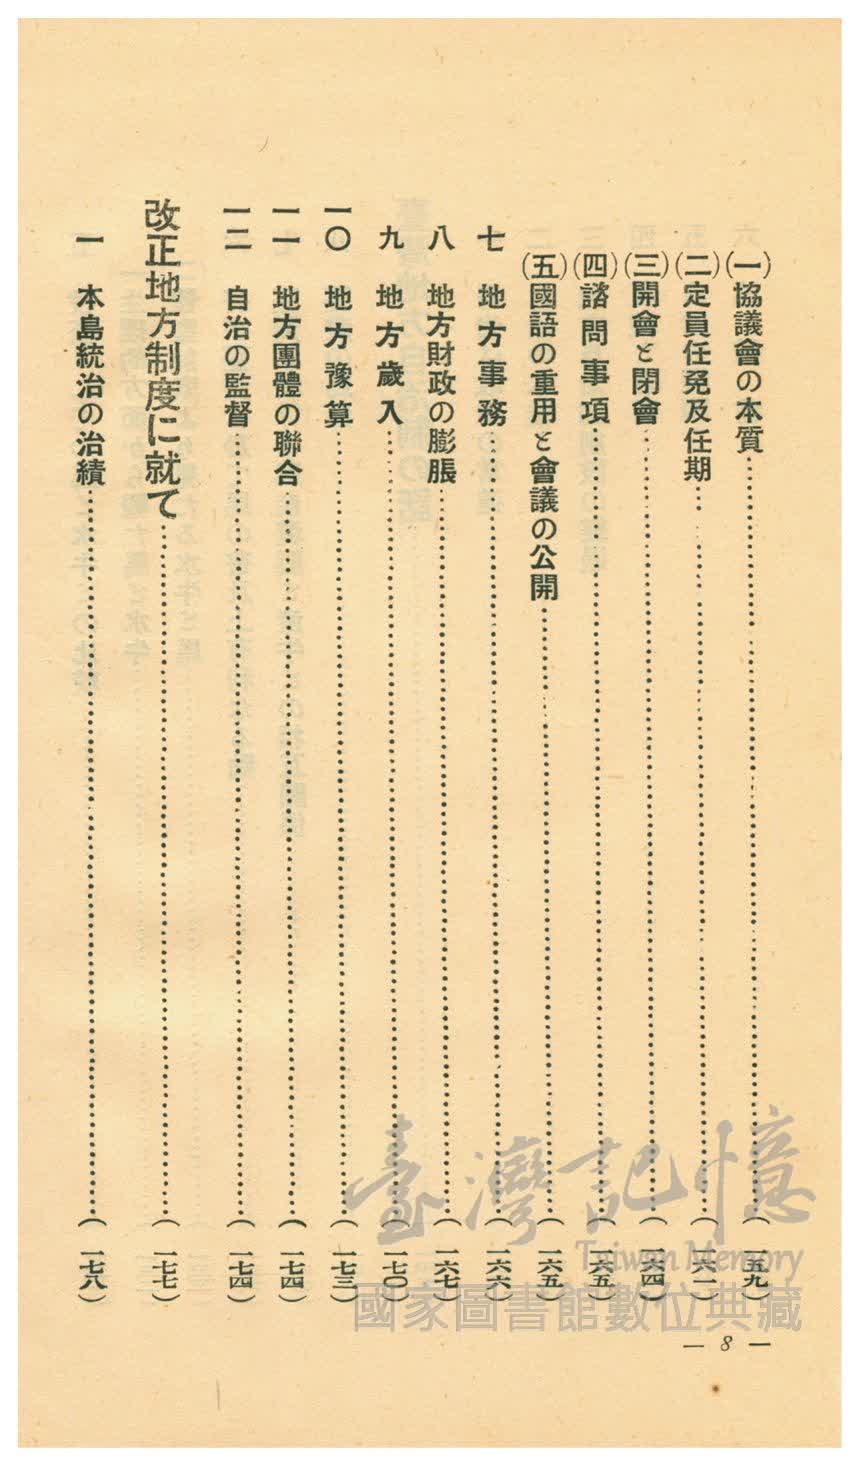 (一)協議會の本質……(一五九)
(二)定員任免及任期……(一六一)
(三)開會と閉會……(一六四)
(四)諮問事項……(一六五)
(五)國語の重用と會議の公開……(一六五)
七 地方事務……(一六六)
八 地方財政の膨脹……(一六七)
九 地方歲入……(一七〇)
一〇 地方豫算……(一七三)
一一 地方團體の聯合……(一七四)
一二 自治の監督……(一七四)
改正地方制度に就て……(一七七)
一 本島統治の治績……(一七八)
— 8 —
臺灣記憶
Taiwan Memory
國家圖書館數位典藏